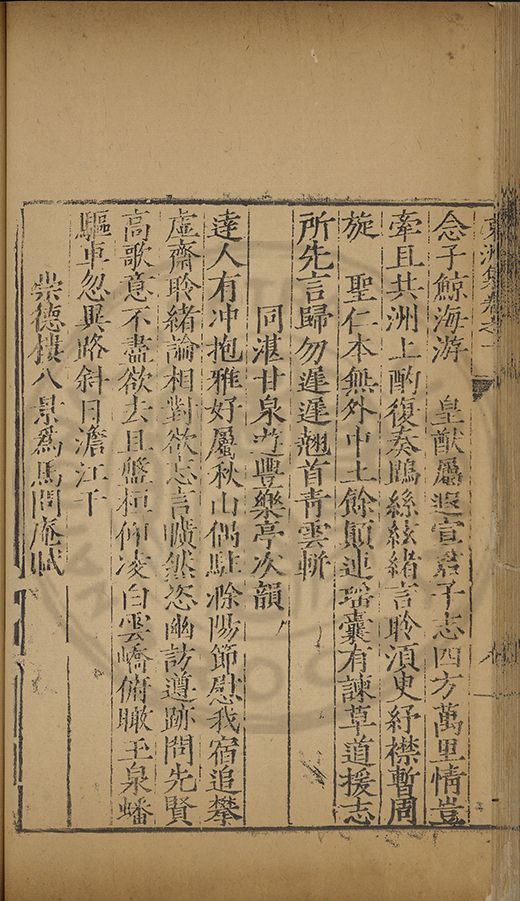 東洲集卷之一
念子鯨海游　皇猷屬遐宣君子志四方萬里情豈
牽且共洲上酌復奏鵾絲絃緒言聆須臾紓襟暫周
旋　聖仁本無外中土餘顛連瑶囊有諫草道援志
所先言歸勿遲遲翹首青雲輧
同湛甘泉遊豐樂亭次韻
逹人有冲抱雅好屬秋山偶駐滁陽節慰我宿追攀
虚齋聆緒論相對欲忘言曠然恣幽訪遵跡問先賢
高歌意不盡欲去且盤桓仰凌白雲嶠俯瞰玉泉蟠
驅車忽異路斜日澹江干
崇德樓八景爲馬問庵賦